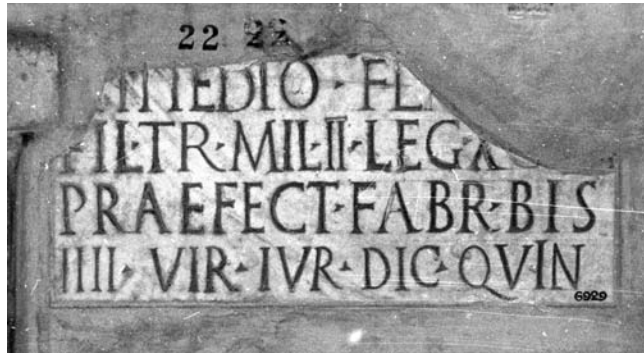 22 22
ANTEDIO · FL
FIL·TR·MIL·II·LEG·X
PRAEFECT·FABR·BIS
IIII·VIR·IVR·DIC·QVIN
6929